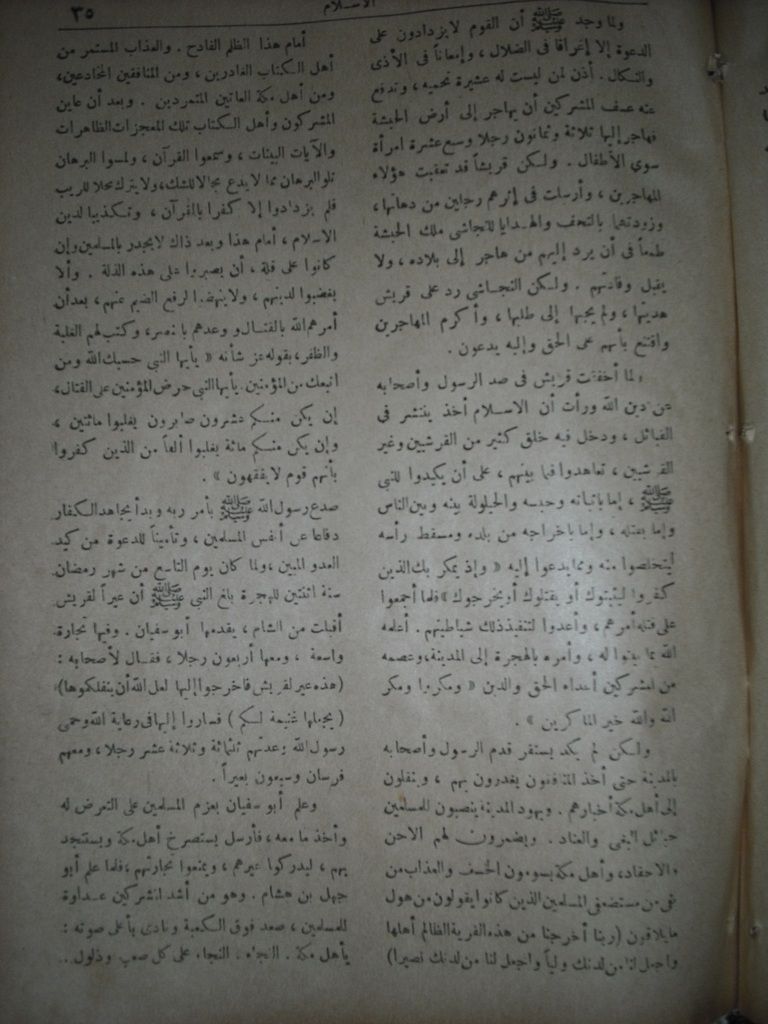 الاسلام
٣٥
ولما وجد ﷺ أن القوم لا يزدادون على
الدعوة إلا إغراقا فى الضلال ، وإمعاناً فى الأذى
والنكال . أذن لمن ليست له عشيرة تحميه ، وتدفع
عنه عسف المشركين أن يهاجر إلى أرض الحبشة
فهاجر إليها ثلاثة وثمانون رجلا وسبع عشرة امرأة
سوى الأطفال . ولكن قريشاً قد تعقبت هؤلاء
المهاجرين ، وأرسلت فى إثرهم رجلين من دهاتها ،
وزودتهما بالتحف والهدايا للنجاشى ملك الحبشة
طمعاً فى أن يرد إليهم من هاجر إلى بلاده ، ولا
يقبل وفادتهم . ولكن النجاشى رد على قريش
هديتها ، ولم يجبها إلى طلبها ، وأكرم المهاجرين
واقتنع بأنهم على الحق وإليه يدعون .
ولما أخفقت قريش فى صد الرسول وأصحابه
عن دين الله ورأت أن الاسلام أخذ ينتشر فى
القبائل ، ودخل فيه خلق كثير من القرشيين وغير
القرشيين ، تعاهدوا فيما بينهم ، على أن يكيدوا للنبى
ﷺ ، إما باثباته وحبسه والحيلولة بينه وبين الناس
وإما بقتله ، وإما باخراجه من بلده ومسقط رأسه
ليتخلصوا منه ومما يدعوا إليه « وإذ يمكر بك الذين
كفروا ليثبتوك أو يقتلوك أو يخرجوك » فلما أجمعوا
على قتله أمرهم ، وأعدوا لتنفيذ ذلك شياطينهم . أعلمه
الله بما بيتوا له ، وأمره بالهجرة إلى المدينة ، وعصمه
من المشركين أعداء الحق والدين « ومكروا ومكر
الله والله خير الماكرين » .
ولكن لم يكد يستقر قدم الرسول وأصحابه
بالمدينة حتى أخذ المنافقون يغدرون بهم ، وينقلون
إلى أهل مكة أخبارهم . ويهود المدينة ينصبون للمسلمين
حبائل البغى والعناد . ويضمرون لهم الاحن
والاحقاد ، وأهل مكة يسومون الخسف والعذاب من
بقى من مستضعفى المسلمين الذين كانوا يقولون من هول
ما يلاقون ( ربنا أخرجنا من هذه القرية الظالم أهلها
واجعل لنا من لدنك ولياً واجعل لنا من لدنك نصيرا )
أمام هذا الظلم الفادح . والعذاب المستمر من
أهل الكتاب الغادرين ، ومن المنافقين المخادعين ،
ومن أهل مكة العاتين المتمردين . وبعد أن عاين
المشركون وأهل الكتاب تلك المعجزات الظاهرات
والآيات البينات ، وسمعوا القرآن ، ولمسوا البرهان
تلو البرهان مما لا يدع مجالا للشك ، ولا يترك محلا للريب
فلم يزدادوا إلا كفرا بالقرآن ، وتكذيبا لدين
الاسلام ، أمام هذا وبعد ذاك لا يجدر بالمسلمين وإن
كانوا على قلة ، أن يصبروا على هذه الذلة . وألا
يغضبوا لدينهم ، ولا ينهضوا لرفع الضيم عنهم ، بعد أن
أمرهم الله بالقتال ووعدهم بالنصر ، وكتب لهم الغلبة
والظفر ، بقوله عز شأنه « يأيها النبى حسبك الله ومن
اتبعك من المؤمنين . يأيها النبى حرض المؤمنين على القتال ،
إن يكن منكم عشرون صابرون يغلبوا مائتين ،
وإن يكن منكم مائة يغلبوا ألفاً من الذين كفروا
بأنهم قوم لا يفقهون » .
صدع رسول الله ﷺ بأمر ربه وبدأ يجاهد الكفار
دفاعا عن أنفس المسلمين ، وتأميناً للدعوة من كيد
العدو المبين ، ولما كان يوم التاسع من شهر رمضان
سنة اثنتين للهجرة بلغ النبى ﷺ أن عيراً لقريش
أقبلت من الشام ، يقدمها أبو سفيان . وفيها تجارة
واسعة ، ومعها أربعون رجلا ، فقال لأصحابه :
( هذه عير لقريش فاخرجوا إليها لعل الله أن ينفلكوها )
( يجعلها غنيمة لكم ) فساروا إليها فى رعاية الله وحمى
رسول الله وعدتهم ثلثمائة وثلاثة عشر رجلا ، ومعهم
فرسان وسبعون بعيراً .
وعلم أبو سفيان بعزم المسلمين على التعرض له
وأخذ ما معه ، فأرسل يستصرخ أهل مكة ويستنجد
بهم ، ليدركوا عيرهم ، ويمنعوا تجارتهم ، فلما علم أبو
جهل بن هشام . وهو من أشد المشركين عداوة
للمسلمين ، صعد فوق الكعبة ونادى بأعلى صوته :
يأهل مكة . النجاء . النجاء على كل صعب وذلول ..